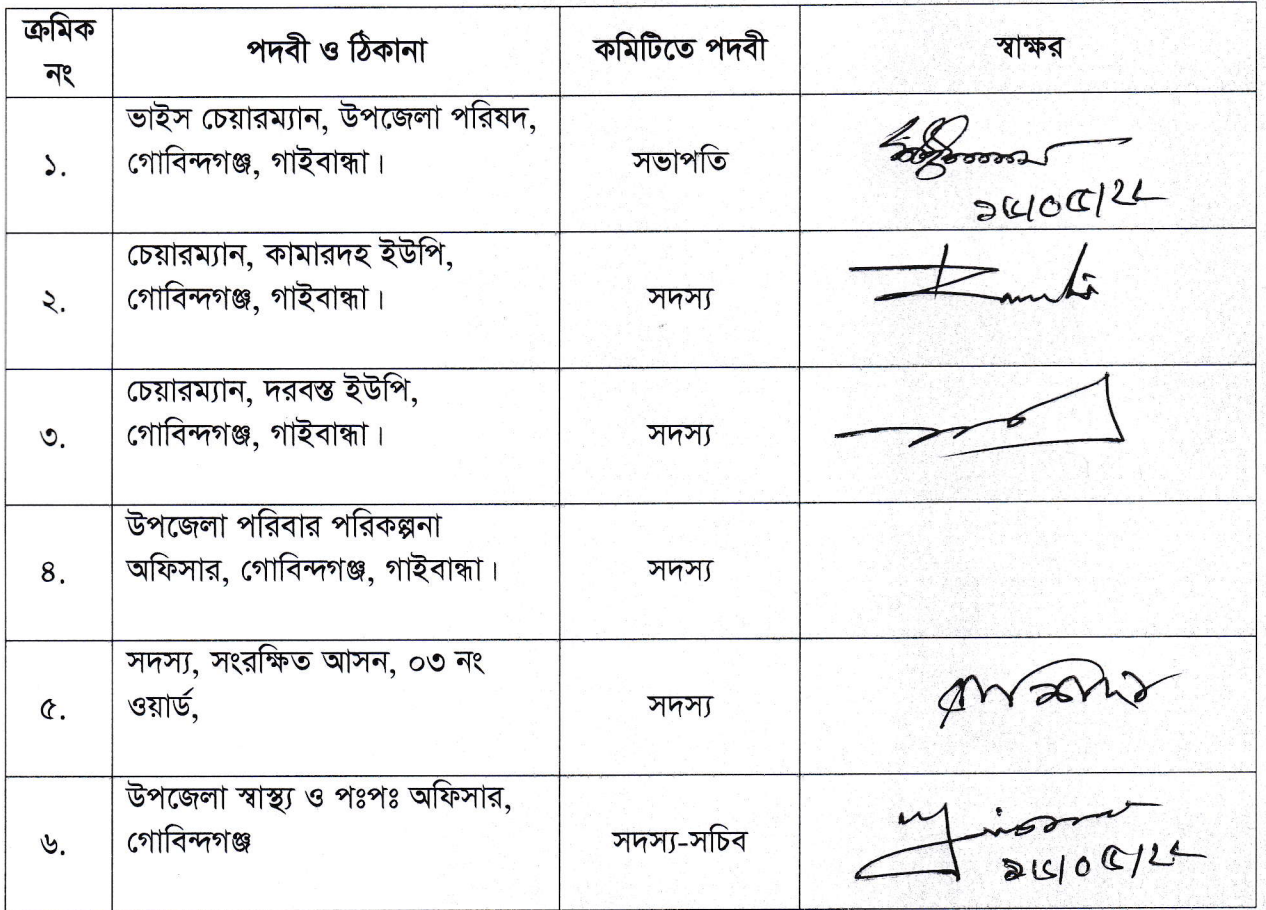 ক্রমিক নং পদবী ও ঠিকানা কমিটিতে পদবী স্বাক্ষর
১. ভাইস চেয়ারম্যান, উপজেলা পরিষদ,
গোবিন্দগঞ্জ, গাইবান্ধা। সভাপতি
২. চেয়ারম্যান, কামারদহ ইউপি,
গোবিন্দগঞ্জ, গাইবান্ধা। সদস্য
৩. চেয়ারম্যান, দরবস্ত ইউপি,
গোবিন্দগঞ্জ, গাইবান্ধা। সদস্য
৪. উপজেলা পরিবার পরিকল্পনা
অফিসার, গোবিন্দগঞ্জ, গাইবান্ধা। সদস্য
৫. সদস্য, সংরক্ষিত আসন, ০৩ নং
ওয়ার্ড, সদস্য
৬. উপজেলা স্বাস্থ্য ও পঃপঃ অফিসার,
গোবিন্দগঞ্জ সদস্য-সচিব